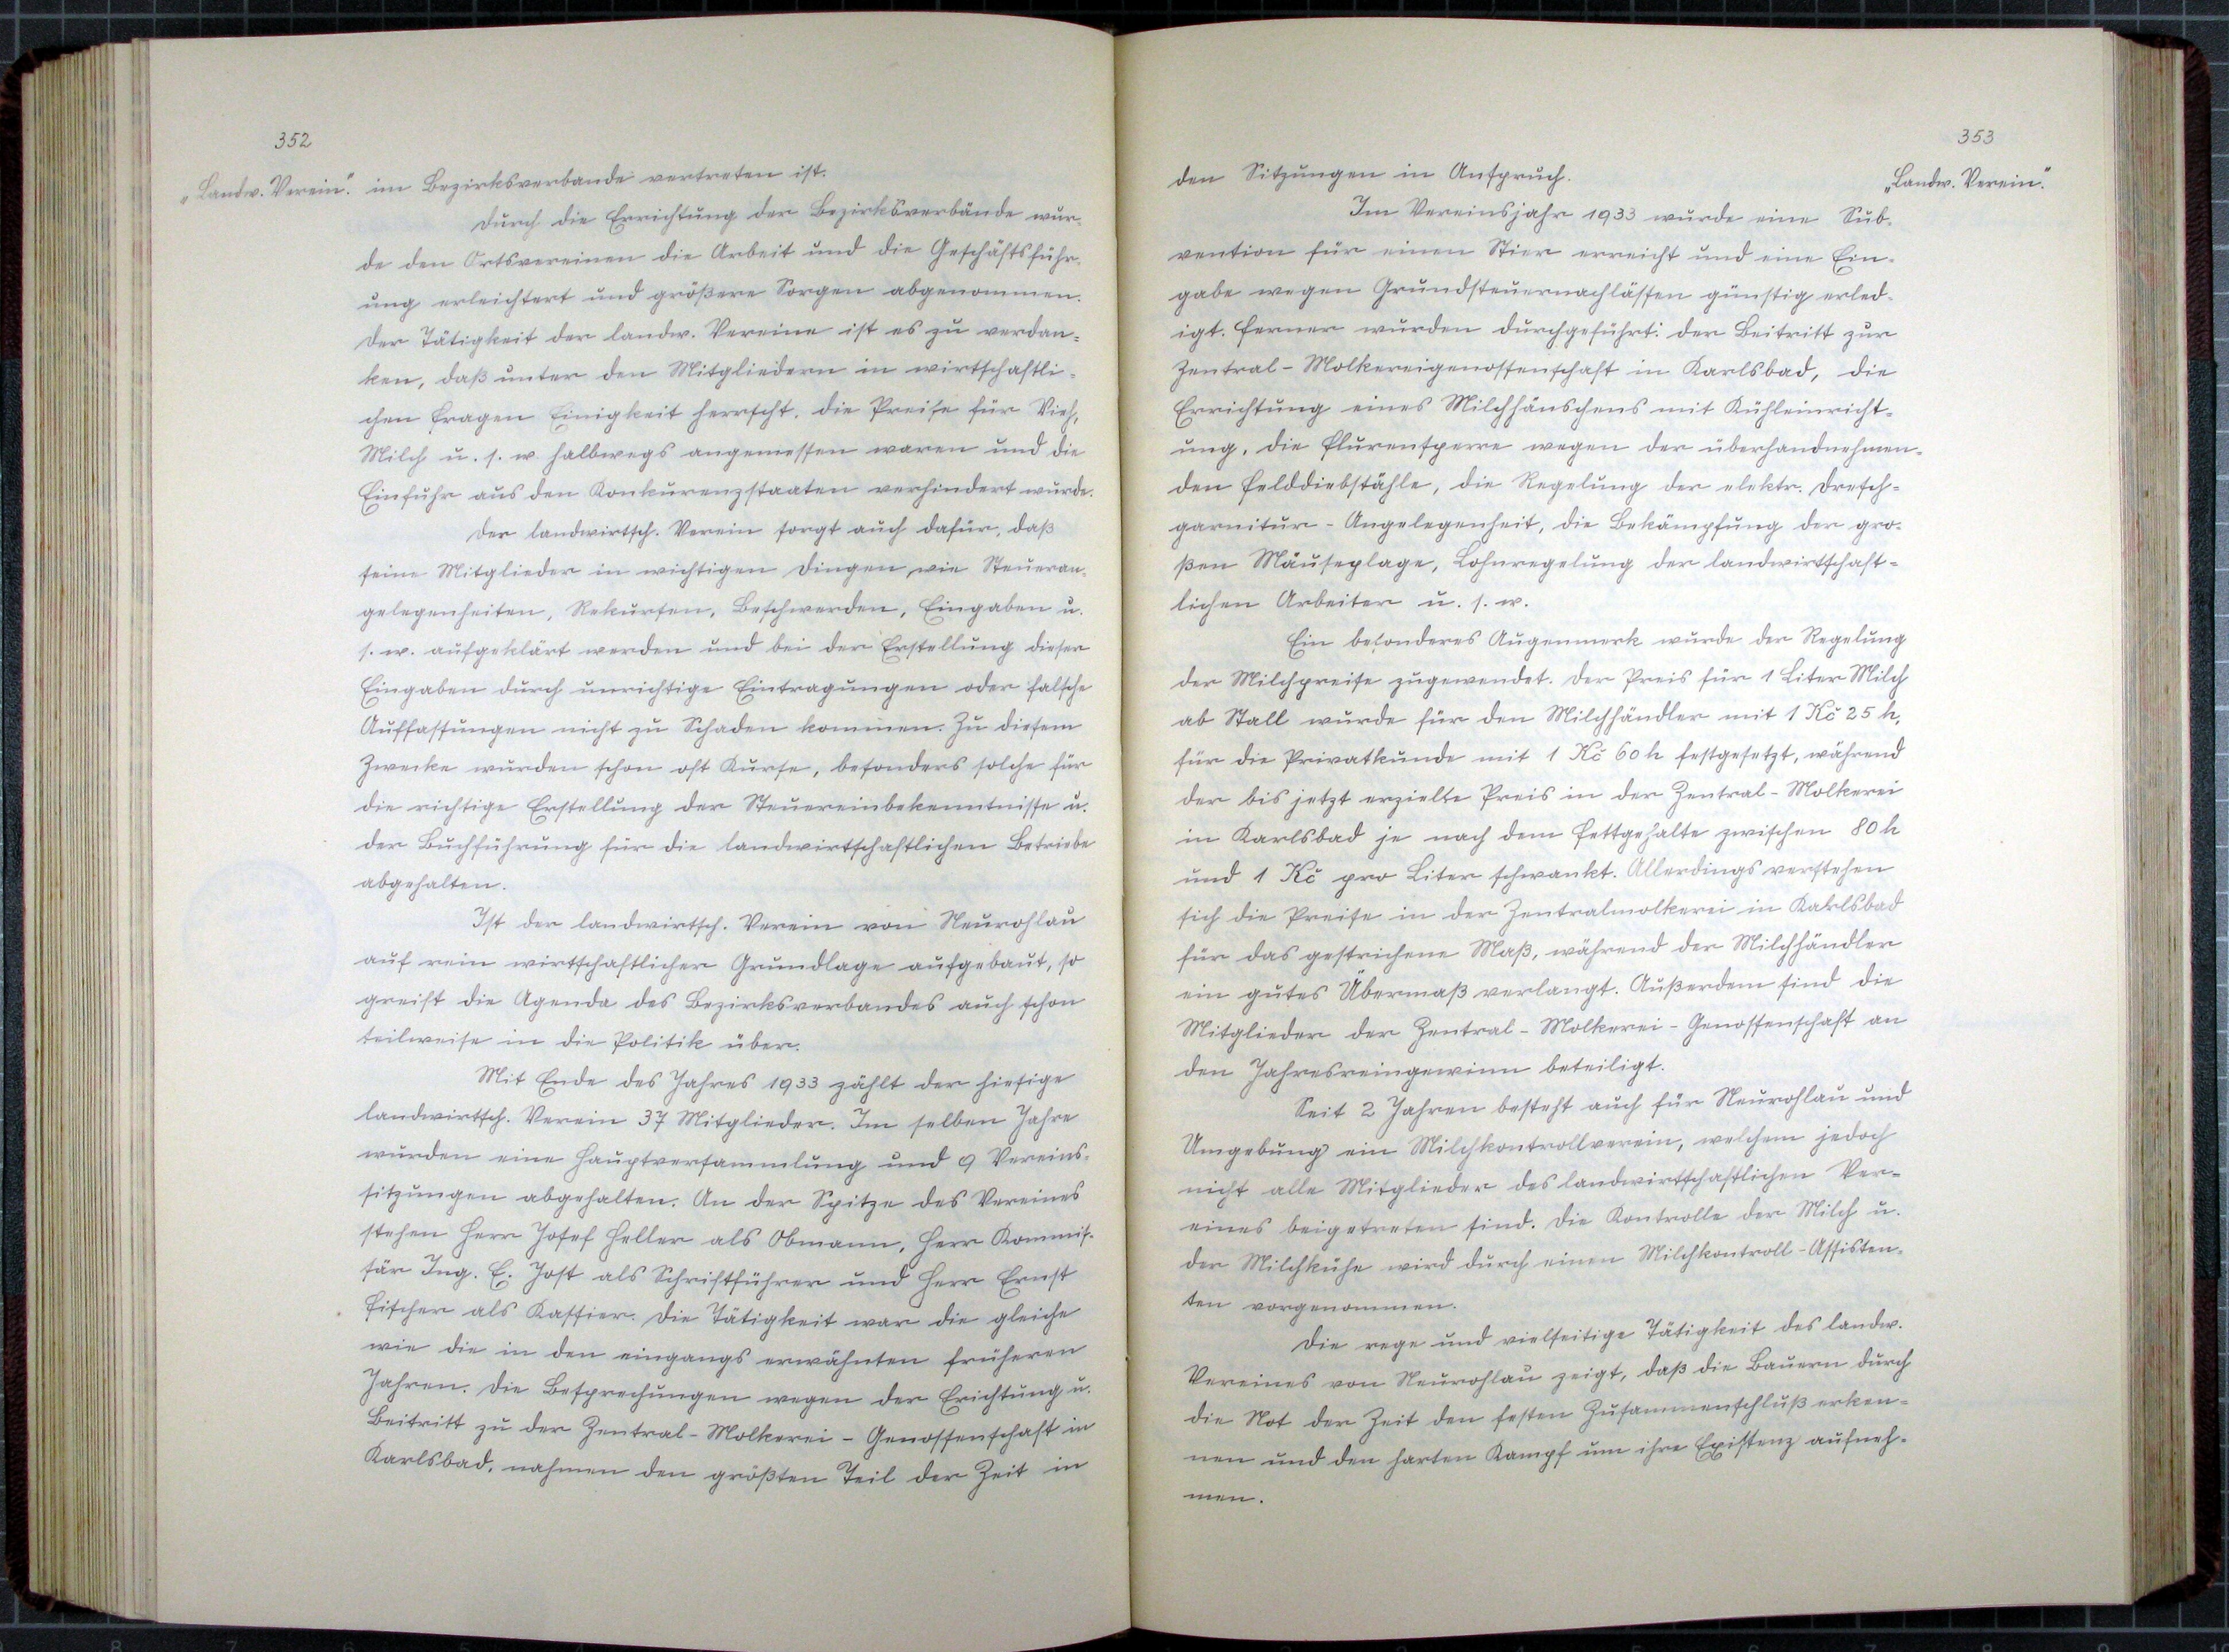 352
„Landw. Verein“. im Bezirksverbande vertreten ist.
Durch die Errichtung der Bezirksverbände wur-
de den Ortsvereinen die Arbeit und die Geschäftsführ-
ung erleichtert und größere Sorgen abgenommen.
Der Tätigkeit der landw. Vereine ist es zu verdan-
ken, daß unter den Mitgliedern in wirtschaftli-
chen Fragen Einigkeit herrscht. die Preise für Vieh,
Milch u. s. w halbwegs angemessen waren und die
Einfuhr aus den Konkurenzstaaten verhindert wurde.
Der landwirtsch. Verein sorgt auch dafür, daß
seine Mitglieder in wichtigen Dingen, wie Steueran-
gelegenheiten, Rekursen, Beschwerden, Eingaben u.
s. w. aufgeklärt werden und bei der Erstellung dieser
Eingaben durch unrichtige Eintragungen oder falsche
Auffassungen nicht zu Schaden kommen. Zu diesem
Zwecke wurden schon oft Kurse, besonders solche für
die richtige Erstellung der Steuereinbekenntnisse u.
der Buchführung für die landwirtschaftlichen Betriebe
abgehalten.
Ist der landwirtsch. Verein von Neurohlau
auf rein wirtschaftlicher Grundlage aufgebaut, so
greift die Agenda des Bezirksverbandes auch schon
teilweise in die Politik über.
Mit Ende des Jahres 1933 zählt der hiesige
landwirtsch. Verein 37 Mitglieder. Im selben Jahre
wurden eine Hauptversammlung und 9 Vereins-
sitzungen abgehalten. An der Spitze des Vereines
stehen Herr Josef Heller als Obmann, Herr Kommis-
sär Ing. E. Jost als Schriftführer und Herr Ernst
Fischer als Kassier. Die Tätigkeit war die gleiche
wie die in den eingangs erwähnten früheren
Jahren. Die Besprechungen wegen der Erichtung u.
Beitritt zu der Zentral-Molkerei-Genossenschaft in
Karlsbad, nahmen den größten Teil der Zeit in
353
„Landw. Verein“.
den Sitzungen in Anspruch.
Im Vereinsjahr 1933 wurde eine Sub-
vention für einen Stier erreicht und eine Ein-
gabe wegen Grundsteuernachlässen günstig erled-
igt. Ferner wurden durchgeführt: der Beitritt zur
Zentral-Molkereigenossenschaft in Karlsbad, die
Errichtung eines Milchhäuschens mit Kühleinricht-
ung, die Flurensperre wegen der überhandnehmen-
den Felddiebstähle, die Regelung der elektr. Dresch-
garnitur-Angelegenheit, die Bekämpfung der gro-
ßen Mäuseplage, Lohnregelung der landwirtschaft-
lichen Arbeiter u. s. w.
Ein besonderes Augenmerk wurde der Regelung
der Milchpreise zugewendet. Der Preis für 1 Liter Milch
ab Stall wurde für den Milchhändler mit 1 Kč 25 h,
für die Privatkunde mit 1 Kč 60 h festgesetzt, während
der bis jetzt erzielte Preis in der Zentral-Molkerei
in Karlsbad je nach dem Fettgehalte zwischen 80 h
und 1 Kč pro Liter schwankt. Allerdings verstehen
sich die Preise in der Zentralmolkerei in Karlsbad
für das gestrichene Maß, während der Milchhändler
ein gutes Übermaß verlangt. Außerdem sind die
Mitglieder der Zentral-Molkerei-Genossenschaft an
den Jahresreingewinn beteiligt.
Seit 2 Jahren besteht auch für Neurohlau und
Umgebung ein Milchkontrollverein, welchem jedoch
nicht alle Mitglieder des landwirtschaftlichen Ver-
eines beigetreten sind. Die Kontrolle der Milch u.
der Milchkühe wird durch einen Milchkontroll-Assisten-
ten vorgenommen.
Die rege und vielseitige Tätigkeit des landw.
Vereines von Neurohlau zeigt, daß die Bauern durch
die Not der Zeit den festen Zusammenschluß erken-
nen und den harten Kampf um ihre Existenz aufneh-
men.